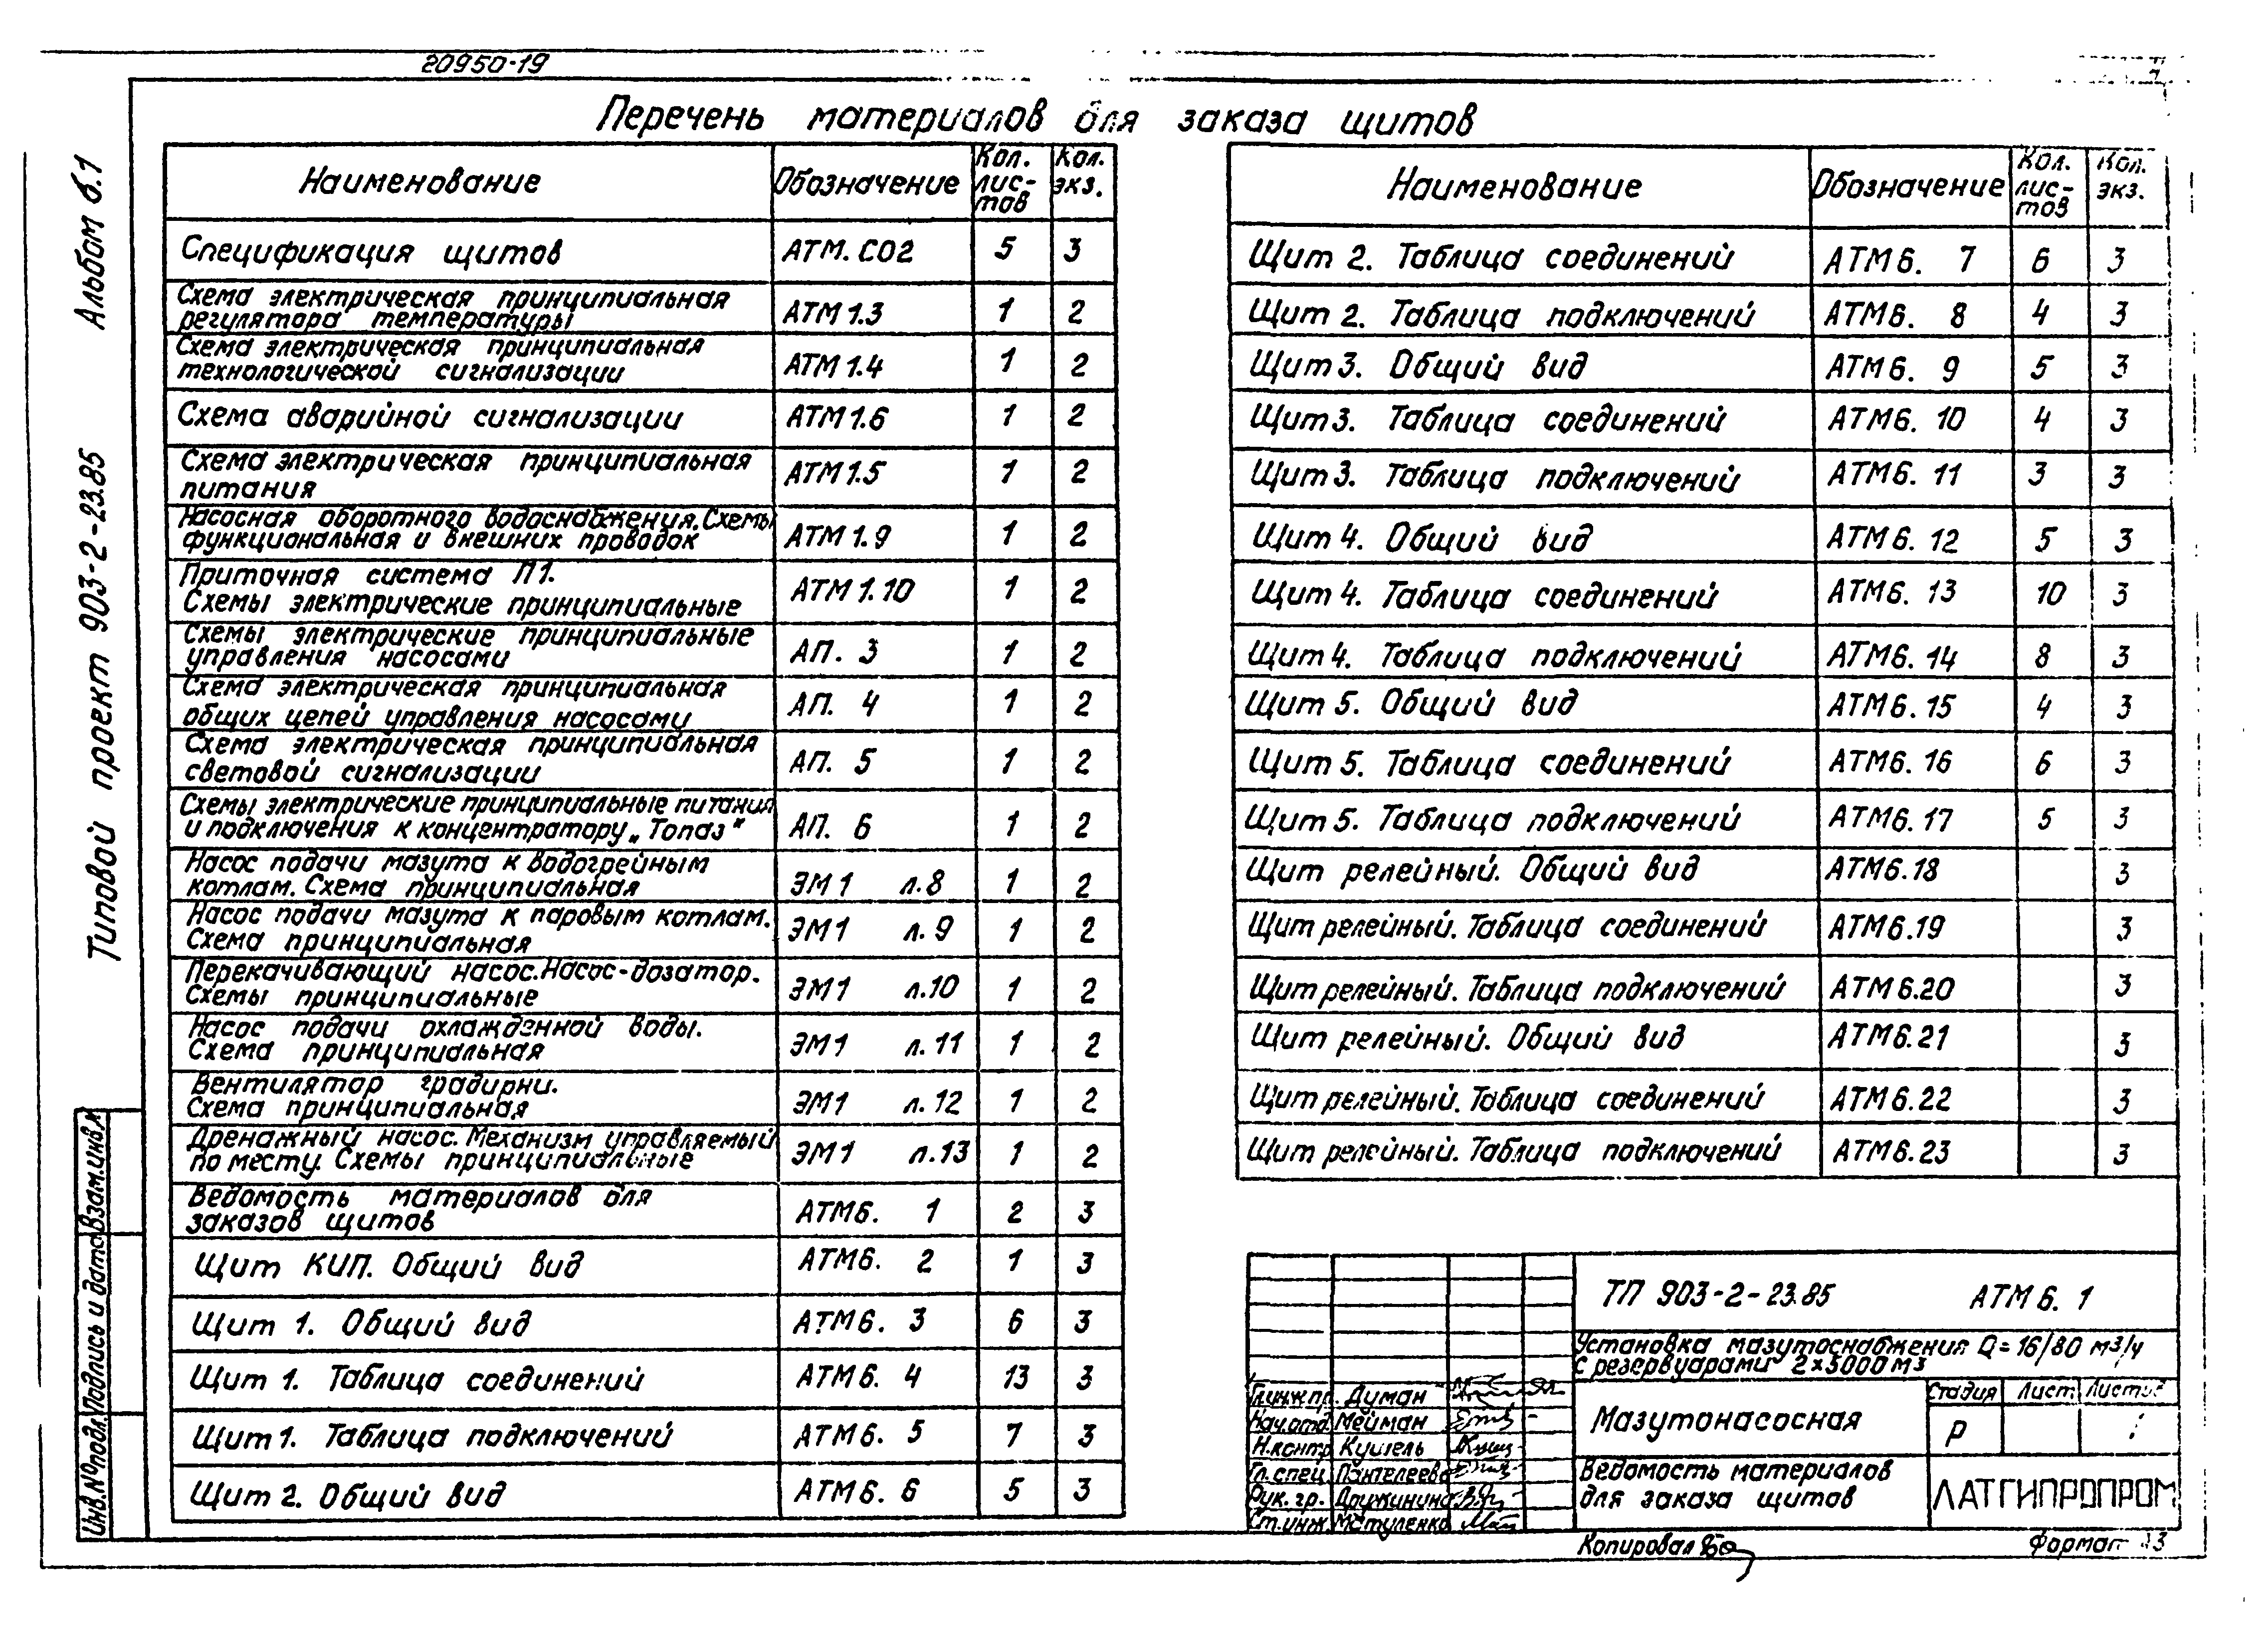 20950-19
Альбом 6.1
Типовой проект 903-2-23.85
Перечень материалов для заказа щитов
Наименование Обозначение Кол. лис- тов Кол. экз.
Спецификация щитов АТМ. СО2 5 3
Схема электрическая принципиальная
регулятора температуры АТМ 1.3 1 2
Схема электрическая принципиальная
технологической сигнализации АТМ 1.4 1 2
Схема аварийной сигнализации АТМ 1.6 1 2
Схема электрическая принципиальная
питания АТМ 1.5 1 2
Насосная оборотного водоснабжения. Схемы
функциональная и внешних проводок АТМ 1.9 1 2
Приточная система П1.
Схемы электрические принципиальные АТМ 1.10 1 2
Схемы электрические принципиальные
управления насосами АП. 3 1 2
Схема электрическая принципиальная
общих цепей управления насосами АП. 4 1 2
Схема электрическая принципиальная
световой сигнализации АП. 5 1 2
Схемы электрические принципиальные питания
и подключения к концентратору „Топаз" АП. 6 1 2
Насос подачи мазута к водогрейным
котлам. Схема принципиальная ЭМ1 л.8 1 2
Насос подачи мазута к паровым котлам.
Схема принципиальная ЭМ1 л.9 1 2
Перекачивающий насос. Насос-дозатор.
Схемы принципиальные ЭМ1 л.10 1 2
Насос подачи охлажденной воды.
Схема принципиальная ЭМ1 л.11 1 2
Вентилятор градирни.
Схема принципиальная ЭМ1 л.12 1 2
Дренажный насос. Механизм управляемый
по месту. Схемы принципиальные ЭМ1 л.13 1 2
Ведомость материалов для
заказов щитов АТМ6. 1 2 3
Щит КИП. Общий вид АТМ6. 2 1 3
Щит 1. Общий вид АТМ6. 3 6 3
Щит 1. Таблица соединений АТМ6. 4 13 3
Щит 1. Таблица подключений АТМ6. 5 7 3
Щит 2. Общий вид АТМ6. 6 5 3
Наименование Обозначение Кол. лис- тов Кол. экз.
Щит 2. Таблица соединений АТМ6. 7 6 3
Щит 2. Таблица подключений АТМ6. 8 4 3
Щит 3. Общий вид АТМ6. 9 5 3
Щит 3. Таблица соединений АТМ6. 10 4 3
Щит 3. Таблица подключений АТМ6. 11 3 3
Щит 4. Общий вид АТМ6. 12 5 3
Щит 4. Таблица соединений АТМ6. 13 10 3
Щит 4. Таблица подключений АТМ6. 14 8 3
Щит 5. Общий вид АТМ6. 15 4 3
Щит 5. Таблица соединений АТМ6. 16 6 3
Щит 5. Таблица подключений АТМ6. 17 5 3
Щит релейный. Общий вид АТМ6.18 3
Щит релейный. Таблица соединений АТМ6.19 3
Щит релейный. Таблица подключений АТМ6.20 3
Щит релейный. Общий вид АТМ6.21 3
Щит релейный. Таблица соединений АТМ6.22 3
Щит релейный. Таблица подключений АТМ6.23 3
ТП 903-2-23.85 АТМ 6. 1
Установка мазутоснабжения Q=16/80 м3/ч
с резервуарами 2×5000 м3
Гл.инж.пр. Думан
Нач.отд. Мейман
Н.контр Кушель
Гл.спец. Пантелеева
Рук. гр. Дружинина
Ст.инж. Матуленко
Мазутонасосная
Стадия Лист Листов
Р
Ведомость материалов
для заказа щитов
ЛАТГИПРОПРОМ
Копировал
Формат
Инв.№ подл. Подпись и дата Взам.инв.№